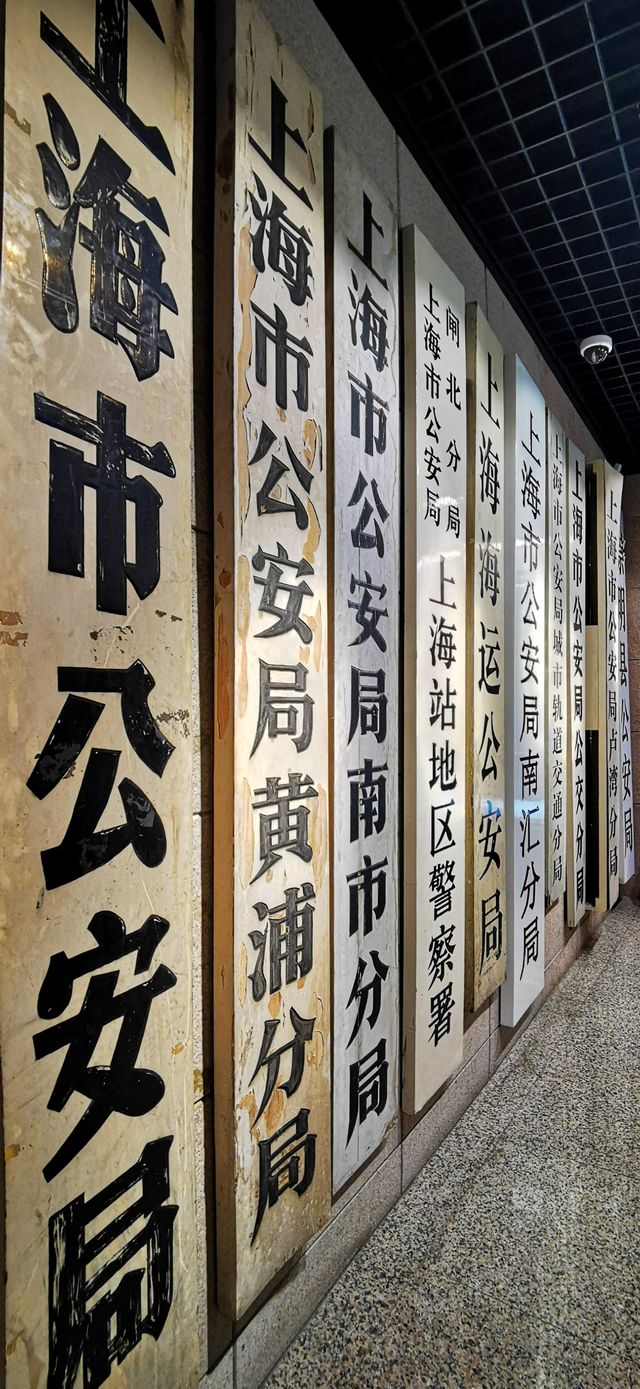 上海市公安局
上海市公安局黄浦分局
上海市公安局南市分局
上海市公安局
闸北分局
上海站地区警察署
上海海运公安局
上海市公安局南汇分局
上海市公安局城市轨道交通分局
上海市公安局公交分局
上海市公安局卢湾分局
崇明县公安局